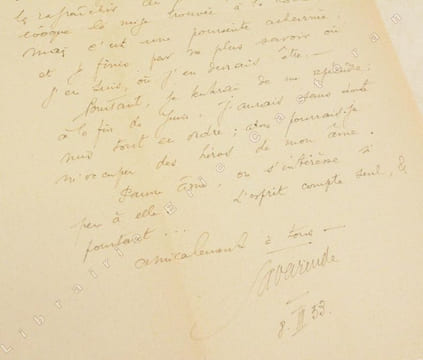 les refraîchis du
évoque le mage trouvée à la
mais c'est une poursuite acharnée,
et je finis par ne plus savoir où
j'en suis, où j'en devrais être. —
Pourtant, je
à la fin de Juin. J'aurais sans doute
mis tout en ordre; alors pourrais-je
m'occuper des héros de mon âme.
Pauvre âme, on s'intéresse si
peu à elle. L'esprit compte seul, &
pourtant ...
amicalement à tous —
Lavarende
8. II 33.
Librairie Elio Catiran